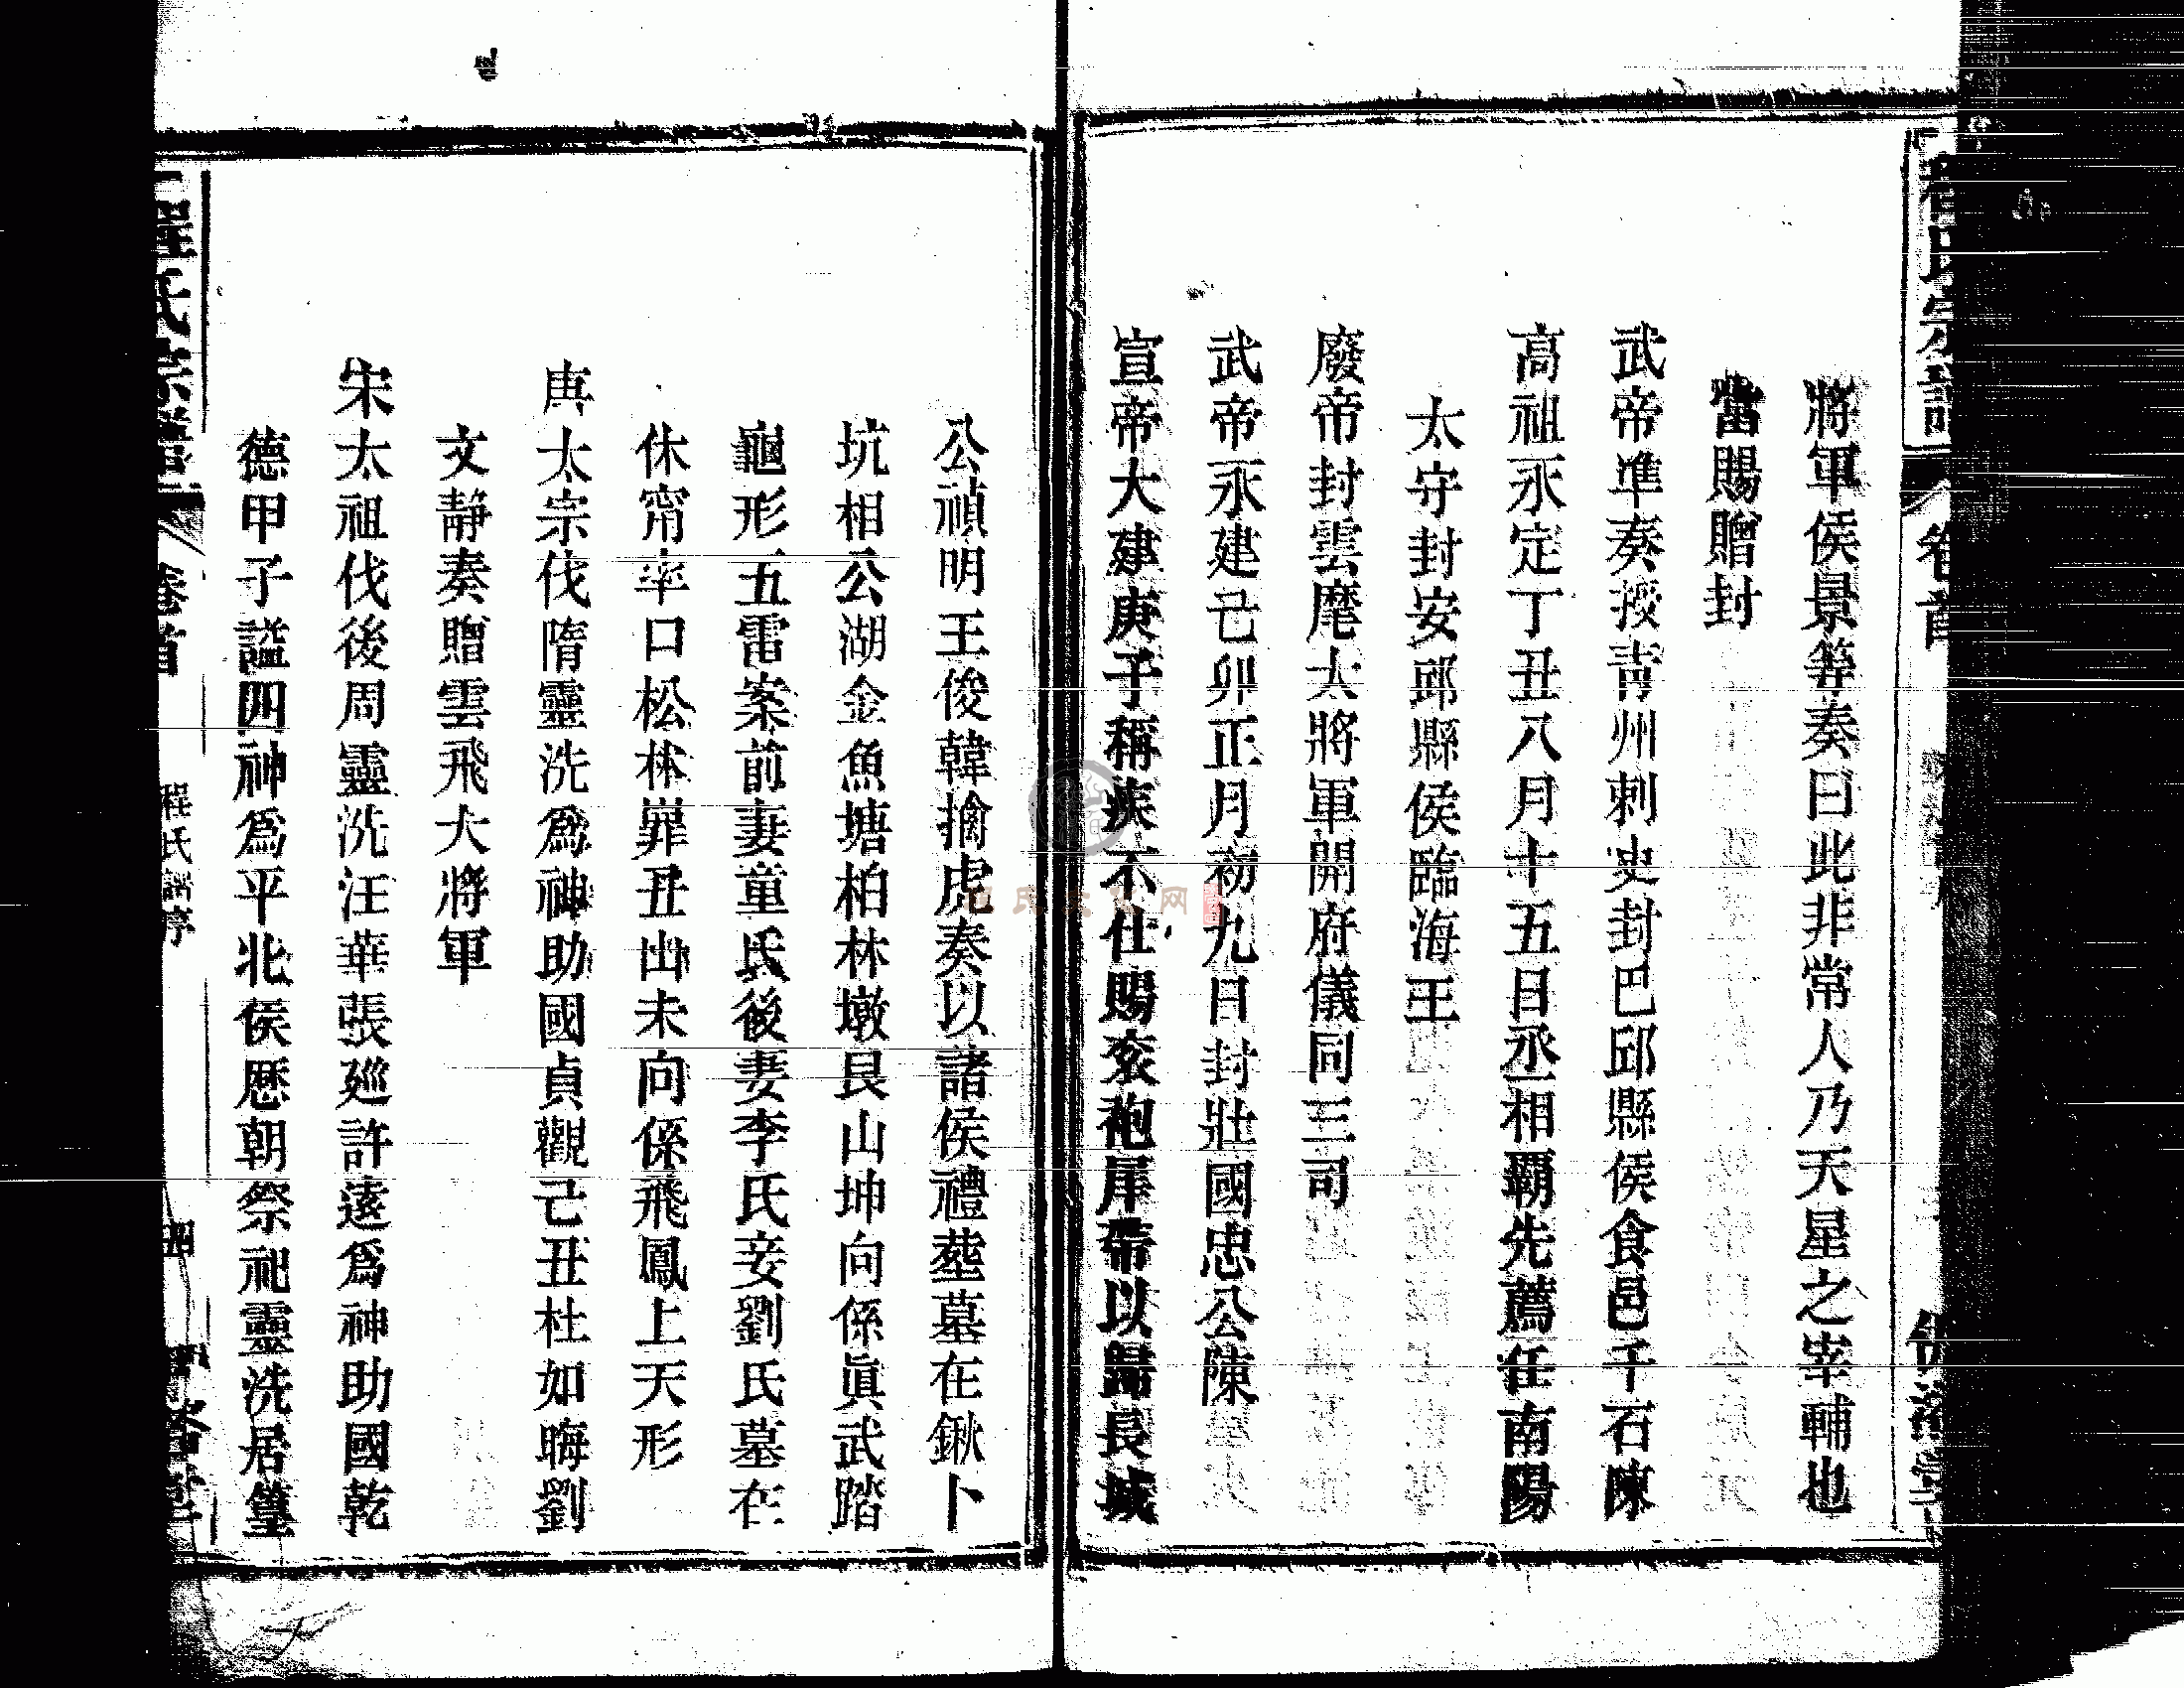 程氏宗譜
卷首
將軍侯景等奏曰此非常人乃天星之宰輔也
當賜贈封
武帝準奏授靑州刺史封巴邱縣侯食邑千石陳
高祖永定丁丑八月十五日丞相覇先薦任南陽
太守封安邱縣侯臨海王
廢帝封雲麾大將軍開府儀同三司
武帝永建己卯正月初九日封壯國忠公陳
宣帝大建庚子稱疾不仕賜衮袍犀帶以歸長城
公禎明王俊韓擒虎奏以諸侯禮塟墓在鍬卜
坑相公湖金魚塘柏林墩艮山坤向係眞武踏
龜形五雷案前妻童氏後妻李氏妾劉氏墓在
休甯率口松林嶭丑山未向係飛鳳上天形
唐太宗伐隋靈洗爲神助國貞觀己丑杜如晦劉
文靜奏贈雲飛大將軍
宋太祖伐後周靈洗汪華張廵許遠爲神助國乾
德甲子謚四神爲平北侯歷朝祭祀靈洗居篁
程氏宗譜
卷首
程氏譜序
四